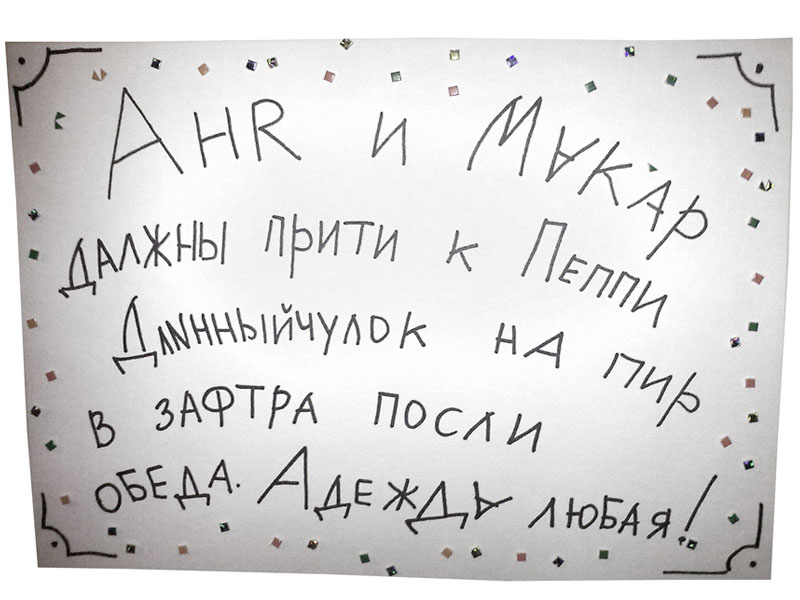 АНЯ и МАКАР
ДАЛЖНЫ ПРИТИ К ПЕППИ
ДЛИННЫЙЧУЛОК НА ПИР
В ЗАФТРА ПОСЛИ
ОБЕДА. АДЕЖДА ЛЮБАЯ!